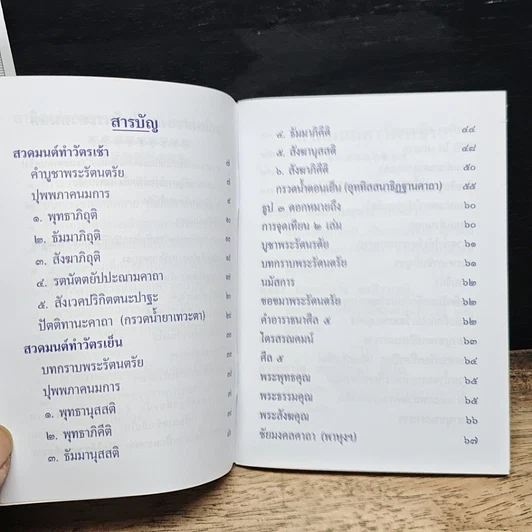 สารบัญ
สวดมนต์ทำวัตรเช้า
คำบูชาพระรัตนตรัย
ปุพพภาคนมการ
๑. พุทธาภิถุติ
๒. ธัมมาภิถุติ
๓. สังฆาภิถุติ
๔. รตนัตตยัปปะณามคาถา
๕. สังเวคปริกิตตนะปาฐะ
ปัตติทานะคาถา (กรวดน้ำยาเทวะตา)
สวดมนต์ทำวัตรเย็น
บทกราบพระรัตนตรัย
ปุพพภาคนมการ
๑. พุทธานุสสติ
๒. พุทธาภิคีติ
๓. ธัมมานุสสติ
๔. ธัมมาภิคีติ ๔๔
๕. สังฆานุสสติ ๔๗
๖. สังฆาภิคีติ ๕๐
กรวดน้ำตอนเย็น (อุททิสสนาธิฏฐานคาถา) ๕๕
ธูป ๓ ดอกหมายถึง ๖๐
การจุดเทียน ๒ เล่ม ๖๐
บูชาพระรัตนาตรัย ๖๑
บทกราบพระรัตนตรัย ๖๑
นมัสการ ๖๒
ขอขมาพระรัตนตรัย ๖๒
คำอาราธนาศีล ๕ ๖๒
ไตรสรณคมน์ ๖๓
ศีล ๕ ๖๔
พระพุทธคุณ ๖๕
พระธรรมคุณ ๖๕
พระสังฆคุณ ๖๖
ชัยมงคลคาถา (พาหุงฯ) ๖๗